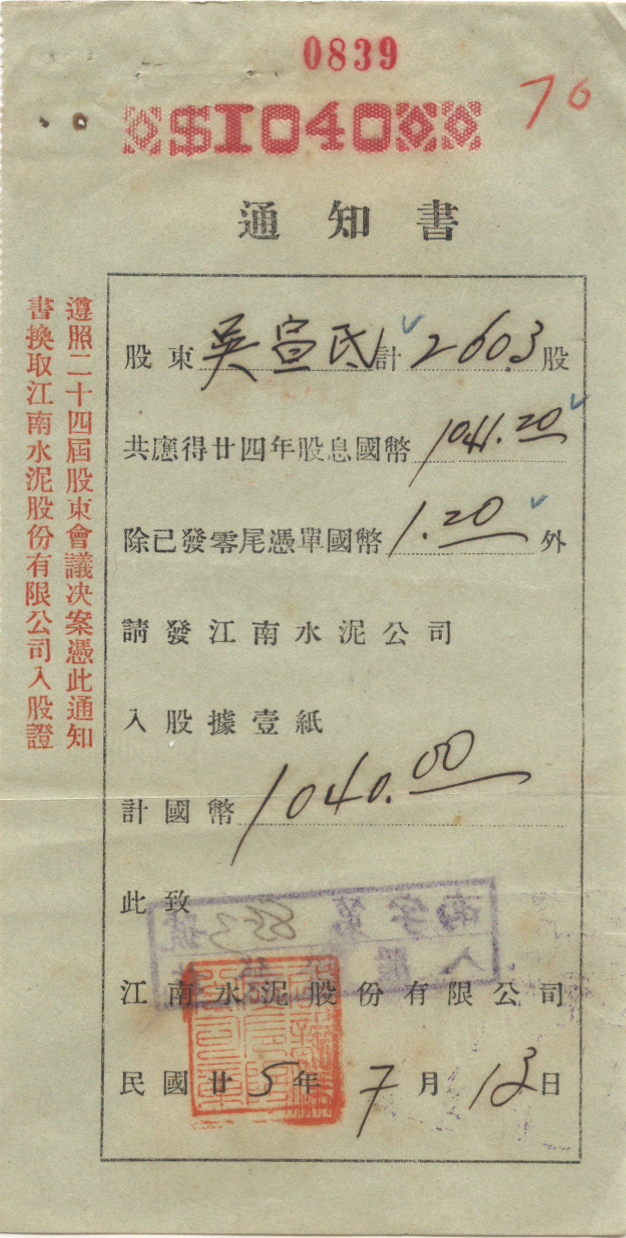 0839
$1040
70
通知書
遵照二十四屆股東會議決案憑此通知
書換取江南水泥股份有限公司入股證
股東吳宣民計2603股
共應得廿四年股息國幣1041.20
除已發零尾憑單國幣1.20外
請發江南水泥公司
入股據壹紙
計國幣1040.00
此致
江南水泥股份有限公司
民國廿5年7月13日